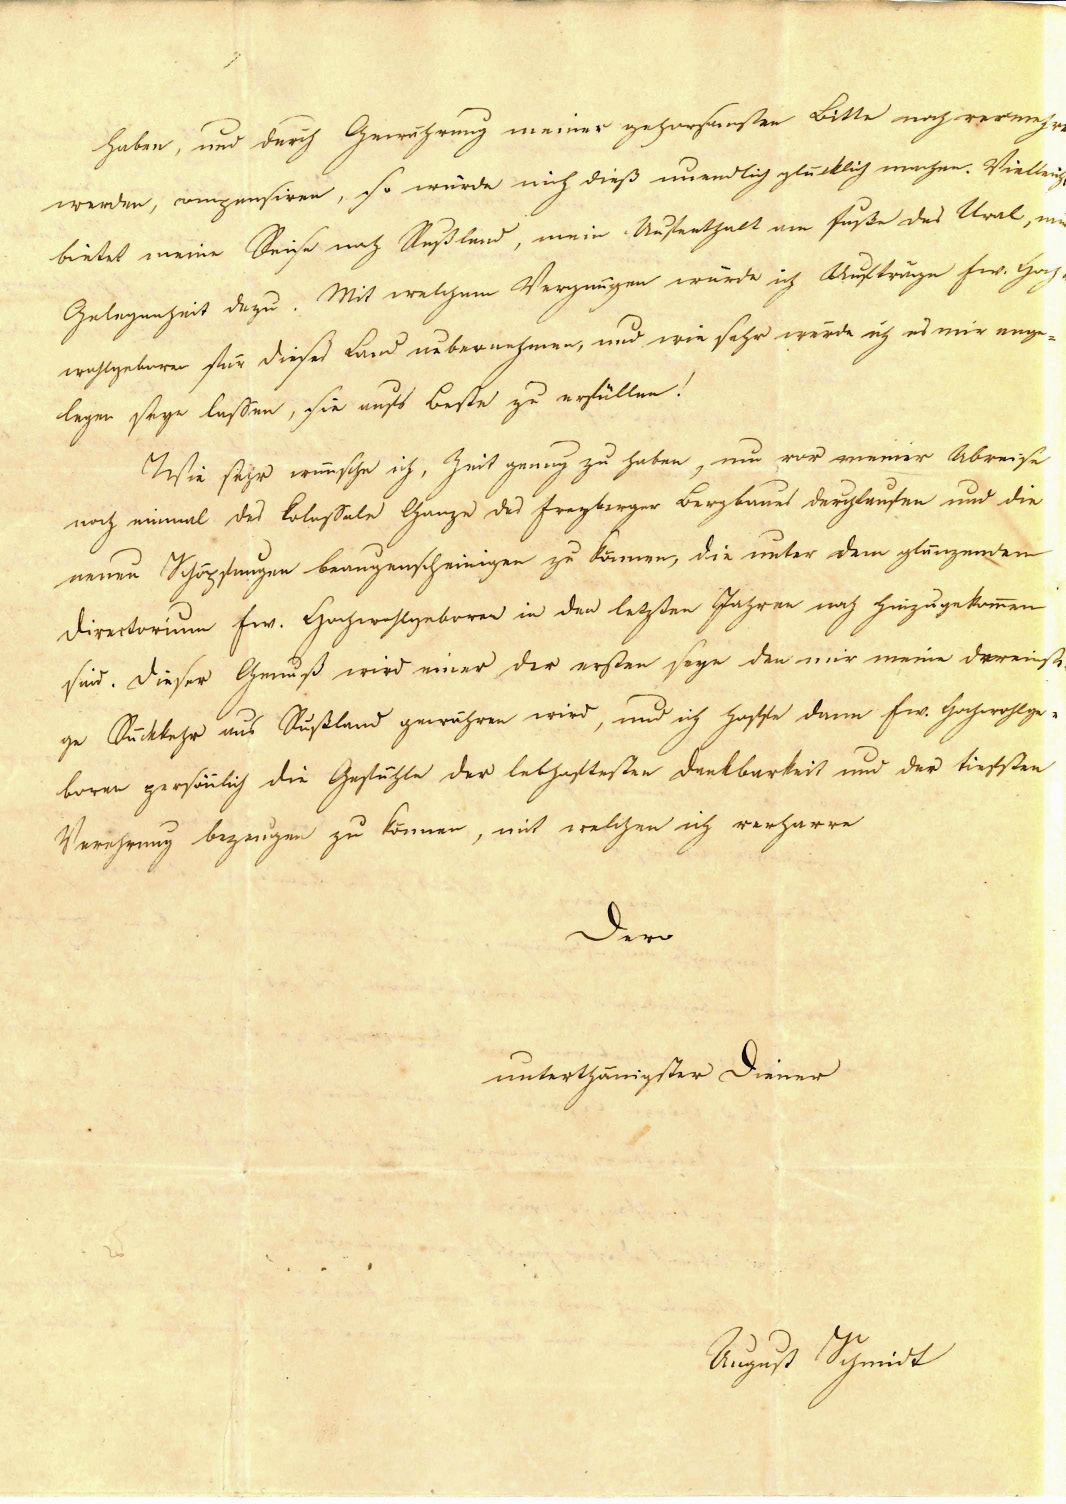 haben, und durch Gewährung meiner gehorsamsten Bitte noch vermehre
werden, compensiren, so würde mich dieß unendlich glücklich machen. Vielleicht
bietet meine Reise nach Rußland, mein Aufenthalt am Fuße des Ural, mir
Gelegenheit dazu. Mit welchem Vergnügen würde ich Aufträge Ew. Hoch-
wohlgeboren für dieses Land uebernehmen, und wie sehr werde ich es mir ange-
legen seyn lassen, sie aufs Beste zu erfüllen!
Wie sehr wünsche ich, Zeit genug zu haben, um vor meiner Abreise
noch einmal das kolossale Ganze des Freyberger Bergbaues durchlaufen und die
neuen Schöpfungen beaugenscheinigen zu können, die unter dem glänzenden
Directorium Ew. Hochwohlgeboren in den letzten Jahren noch hinzugekommen
sind. Dieser Genuß wird einer der ersten seyn den mir meine dereinsti-
ge Rückkehr aus Rußland gewähren wird, und ich hoffe dann Ew. Hochwohlge-
boren persönlich die Gefühle der lebhaftesten Dankbarkeit und der tiefsten
Verehrung bezeugen zu können, mit welchen ich verharre
Dero
unterthänigster Diener
August Schmidt